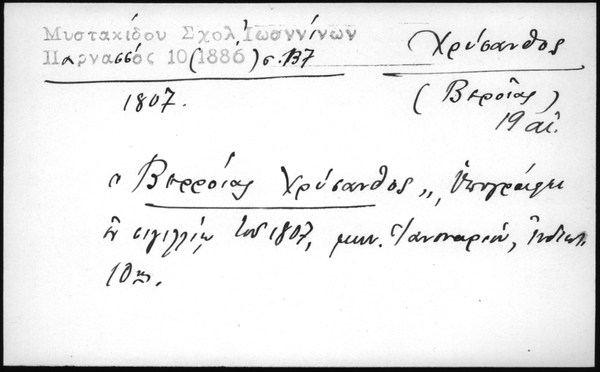 Μυστακίδου Σχολ Ἰωαννίνων
Παρνασσός 10 (1886) σ. 137
Χρύσανθος
(Βεροίας)
19 αἰ.
1807.
" Βερροίας Χρύσανθος „ ὑπογράφει
ἐν σιγιλλίῳ τοῦ 1807, μην. Ἰανουαρίου, ἰνδικτ.
10ης.